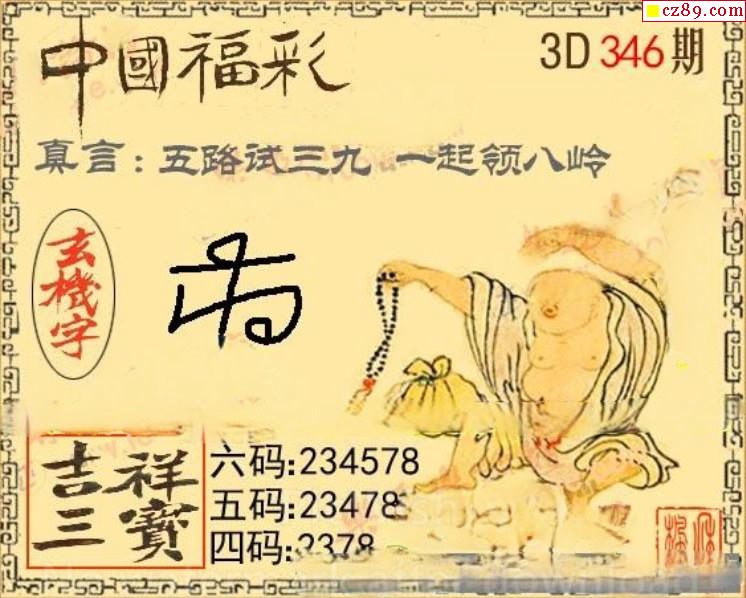 cz89.com
中國福彩
3D 346期
真言：五路试三九 一起领八岭
玄機字
吉祥三寶
六码:234578
五码:23478
四码:2378